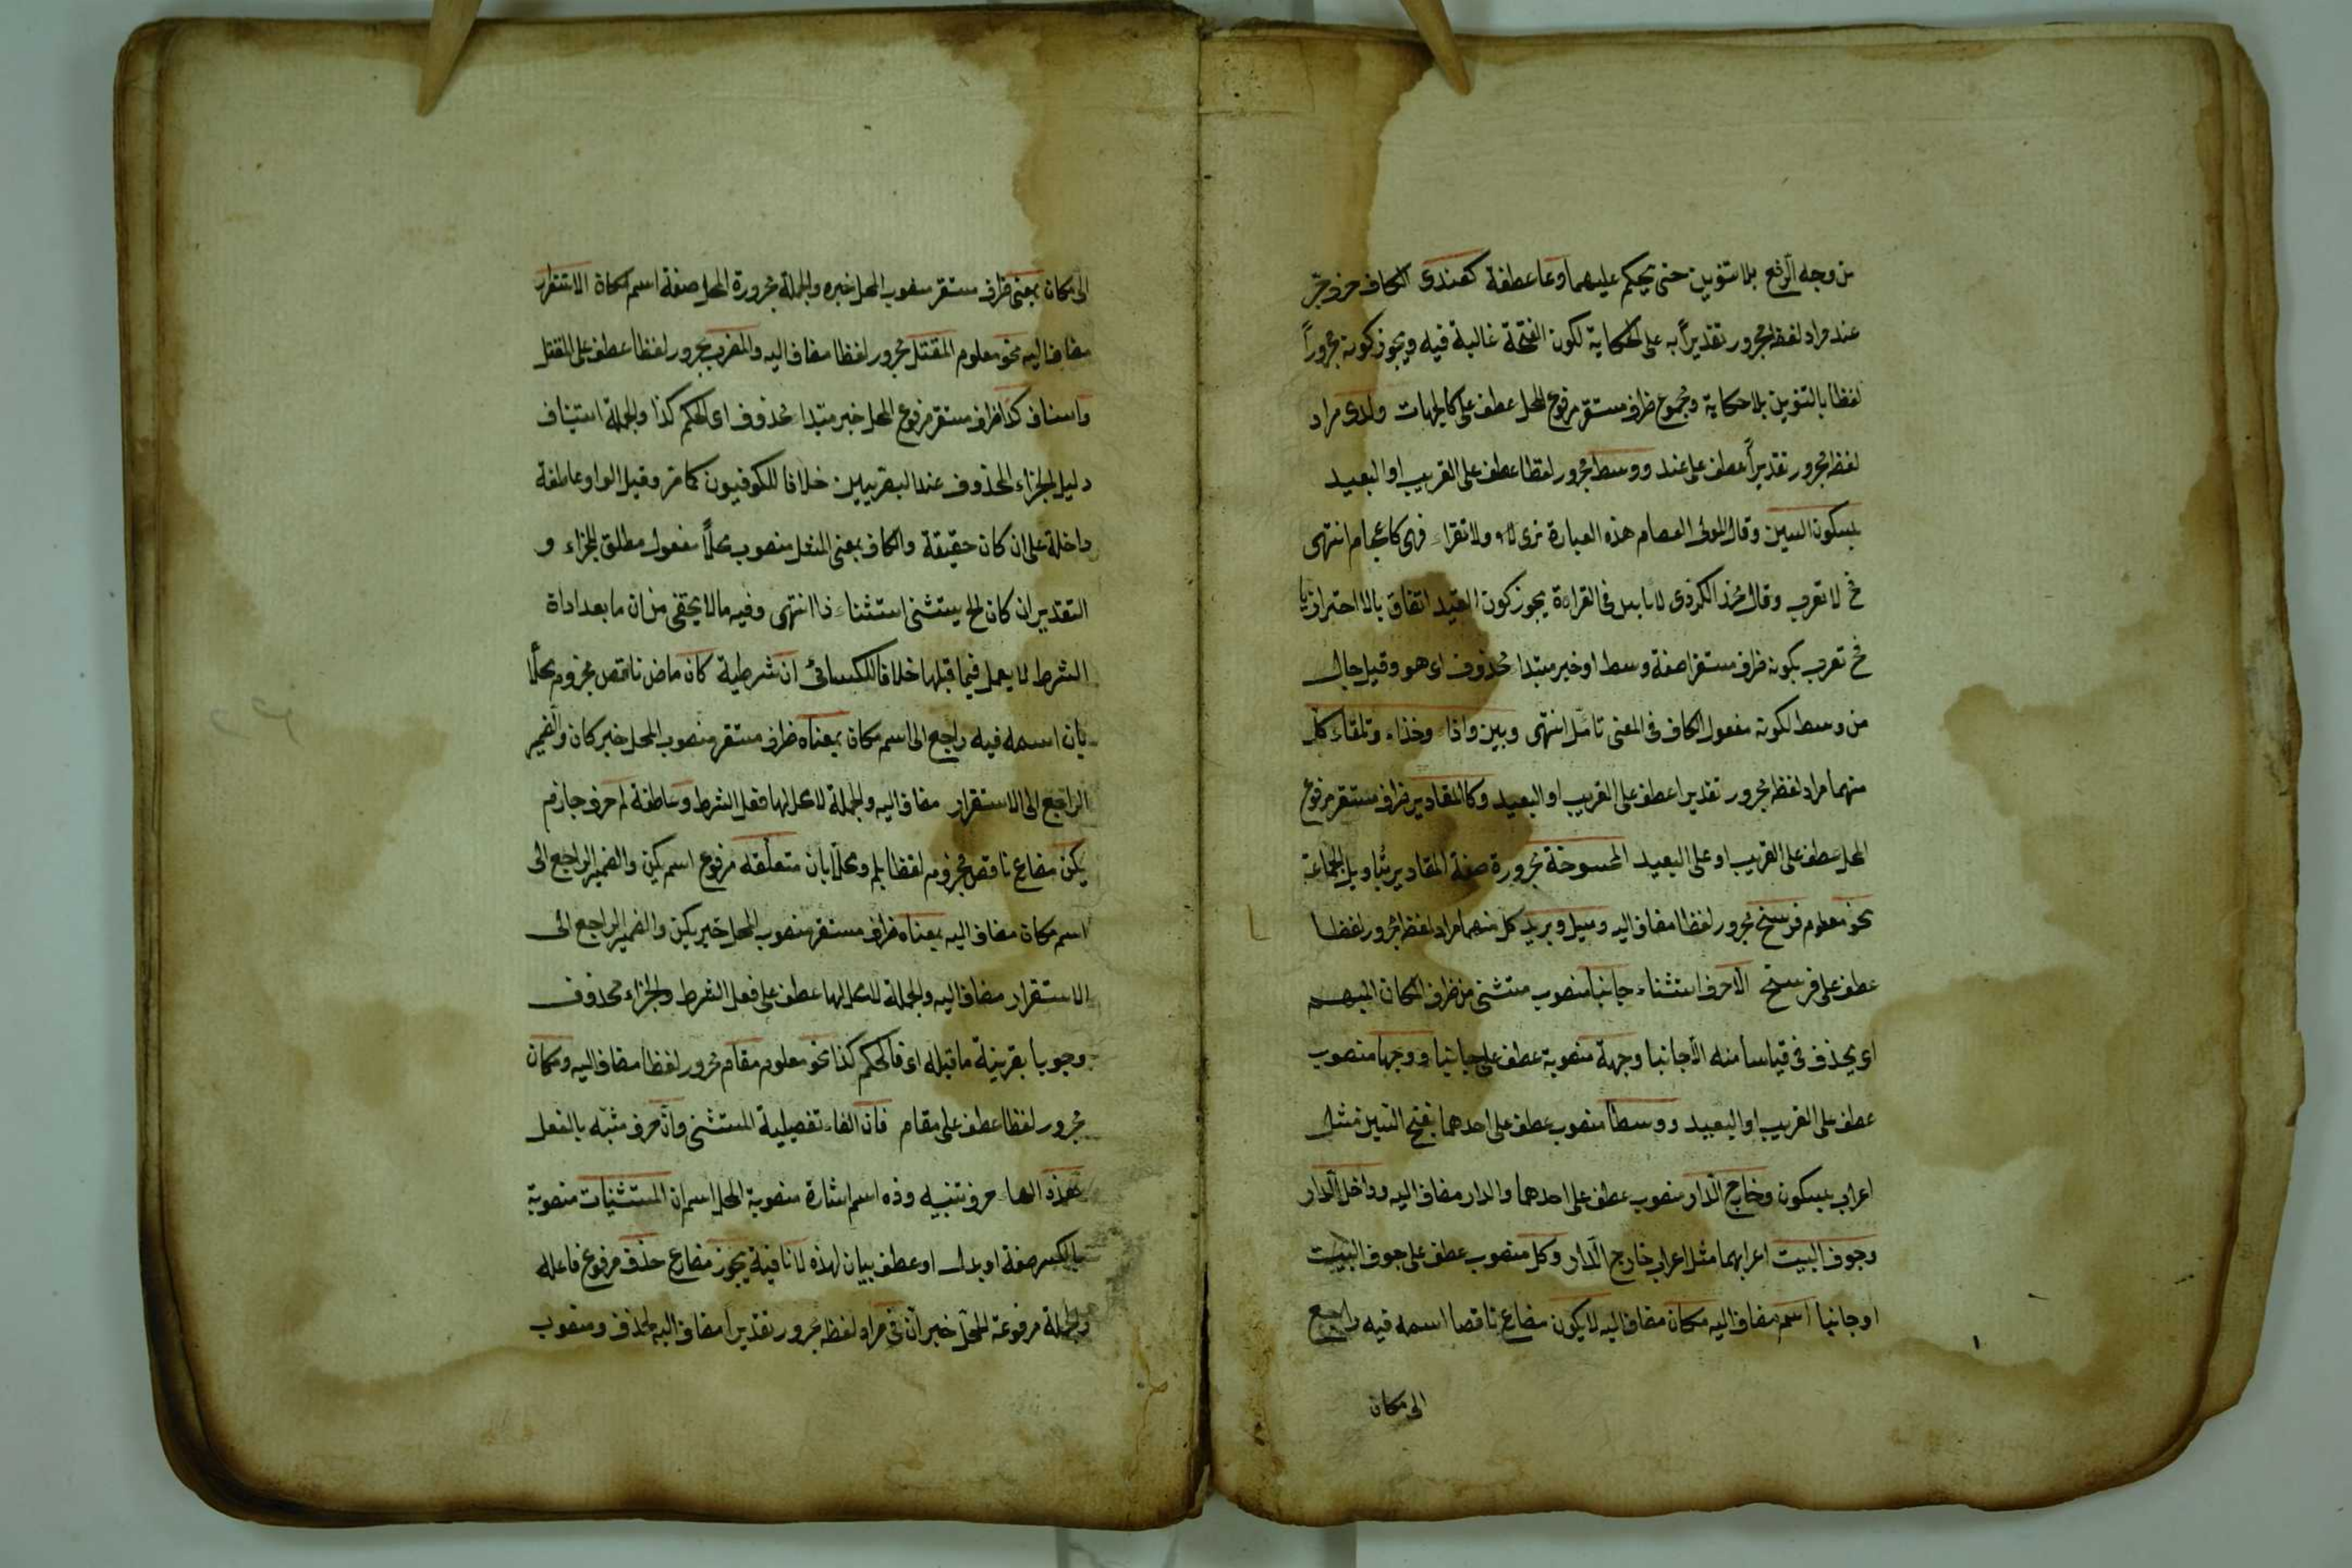 من وجه الرفع بلا تنوين حتى يحكم عليهما وعاعطفة كعندى الكاف حرف جر
عند مراد لفظه مجرور تقديراً به على الحكاية لكون الفتحة غالبة فيه ويجوز كونه مجروراً
لفظا بالتنوين بلا حكاية ومجموع ظرف مستقر مرفوع المحل عطف على كالجهات ولدى مراد
لفظه مجرور تقديراً عطف على عند ووسط مجرور لفظا عطف على القريب او البعيد
بسكون السين وقال المولى العصام هذه العبارة ترى ولا تقراء فهى كاعجام انتهى
فح لا تعرب وقال الكردى فى القراءة يجوز كون القيد اتفاق
فح تعرب بكونه ظرف مستقرا صفة وسط او خبر مبتدا محذوف اى هو وقيل حال
من وسط لكونه مفعول الكاف فى المعنى تامّل انتهى وبين واذاء وحذاء وتلقاء كل
منهما مراد لفظه مجرور تقديرا عطف على القريب او البعيد وكالمقادير ظرف مستقر مرفوع
المحل عطف على القريب او على البعيد الممسوحة مجرورة صفة المقادير بتأويل الجماعة
نحو معلوم فرسخ مجرور لفظا مضاف اليه وميل وبريد كل منهما مراد لفظه مجرور لفظا
عطف على فرسخ الّا حرف استثناء جانبا منصوب مستثنى من ظرف المكان المبهم
اى يحذف فى قياسا منه الّا جانبا وجهة منصوبة عطف على جانبا ووجها منصوب
عطف على القريب او البعيد ووسطا منصوب عطف على احدهما بفتح السين مثل
اعراب بسكون وخارج الدّار منصوب عطف على احدهما والدار مضاف اليه وداخل الدّار
وجوف البيت اعرابهما مثل اعراب خارج الدّار وكل منصوب عطف على جوف البيت
او جانبا اسم مضاف اليه مكان مضاف اليه لا يكون مضارع ناقصا اسمه فيه راجع
الى مكان
الى مكان بمعنى ظرف مستقر منصوب المحل خبره والجملة مجرورة المحل صفة اسم مكان الاستقرار
مضاف اليه نحو معلوم المقتل مجرور لفظا مضاف اليه والمضرب مجرور لفظا عطف على المقتل
كذا ظرف مستقر مرفوع المحل خبر مبتدا محذوف اى الحكم كذا والجملة استيناف
دليل الجزاء المحذوف عند البصريين خلافا للكوفيون كما مر وقيل الواو عاطفة
داخلة على ان كان حقيقة والكاف بمعنى المثل منصوب محلاً مفعول مطلق للجزاء و
التقدير ان كان الخ يستثنى استثناء ذا انتهى وفيه ما لا يخفى من ان ما بعد اداة
الشرط لا يعمل فيما قبلها خلافا للكسائى ان شرطية كان ماض ناقص مجزوم محلا
بان اسمه فيه راجع الى اسم مكان بمعناه ظرف مستقر منصوب المحل خبر كان والضمير
الراجع الى الاستقرار مضاف اليه والجملة لا محل لها فعل الشرط وعاطفة لم حرف جازم
يكن مضارع ناقص مجزوم لفظا بلم ومحلاً بان متعلّقه مرفوع اسم يكن والضمير الراجع الى
اسم مكان مضاف اليه بمعناه ظرف مستقر منصوب المحل خبر يكن والضمير الراجع الى
الاستقرار مضاف اليه والجملة لا محل لها عطف على فعل الشرط والجزاء محذوف
وجوبا بقرينة ما قبله اى فالحكم كذا نحو معلوم مقام مجرور لفظا مضاف اليه ومكان
مجرور لفظا عطف على مقام فان الفاء تفصيلية المستثنى وانّ حرف مشبّه بالفعل
هذه الها حرف تنبيه وذه اسم اشارة منصوبة المحل اسم ان المستثنيات منصوبة
بالكسر صفة او بدل او عطف بيان لهذه لا نافية يجوز مضارع حذف مرفوع فاعله
والجملة مرفوعة المحلّ خبر انّ فى مراد لفظه مجرور تقديرا مضاف اليه لحذف ومنصوب